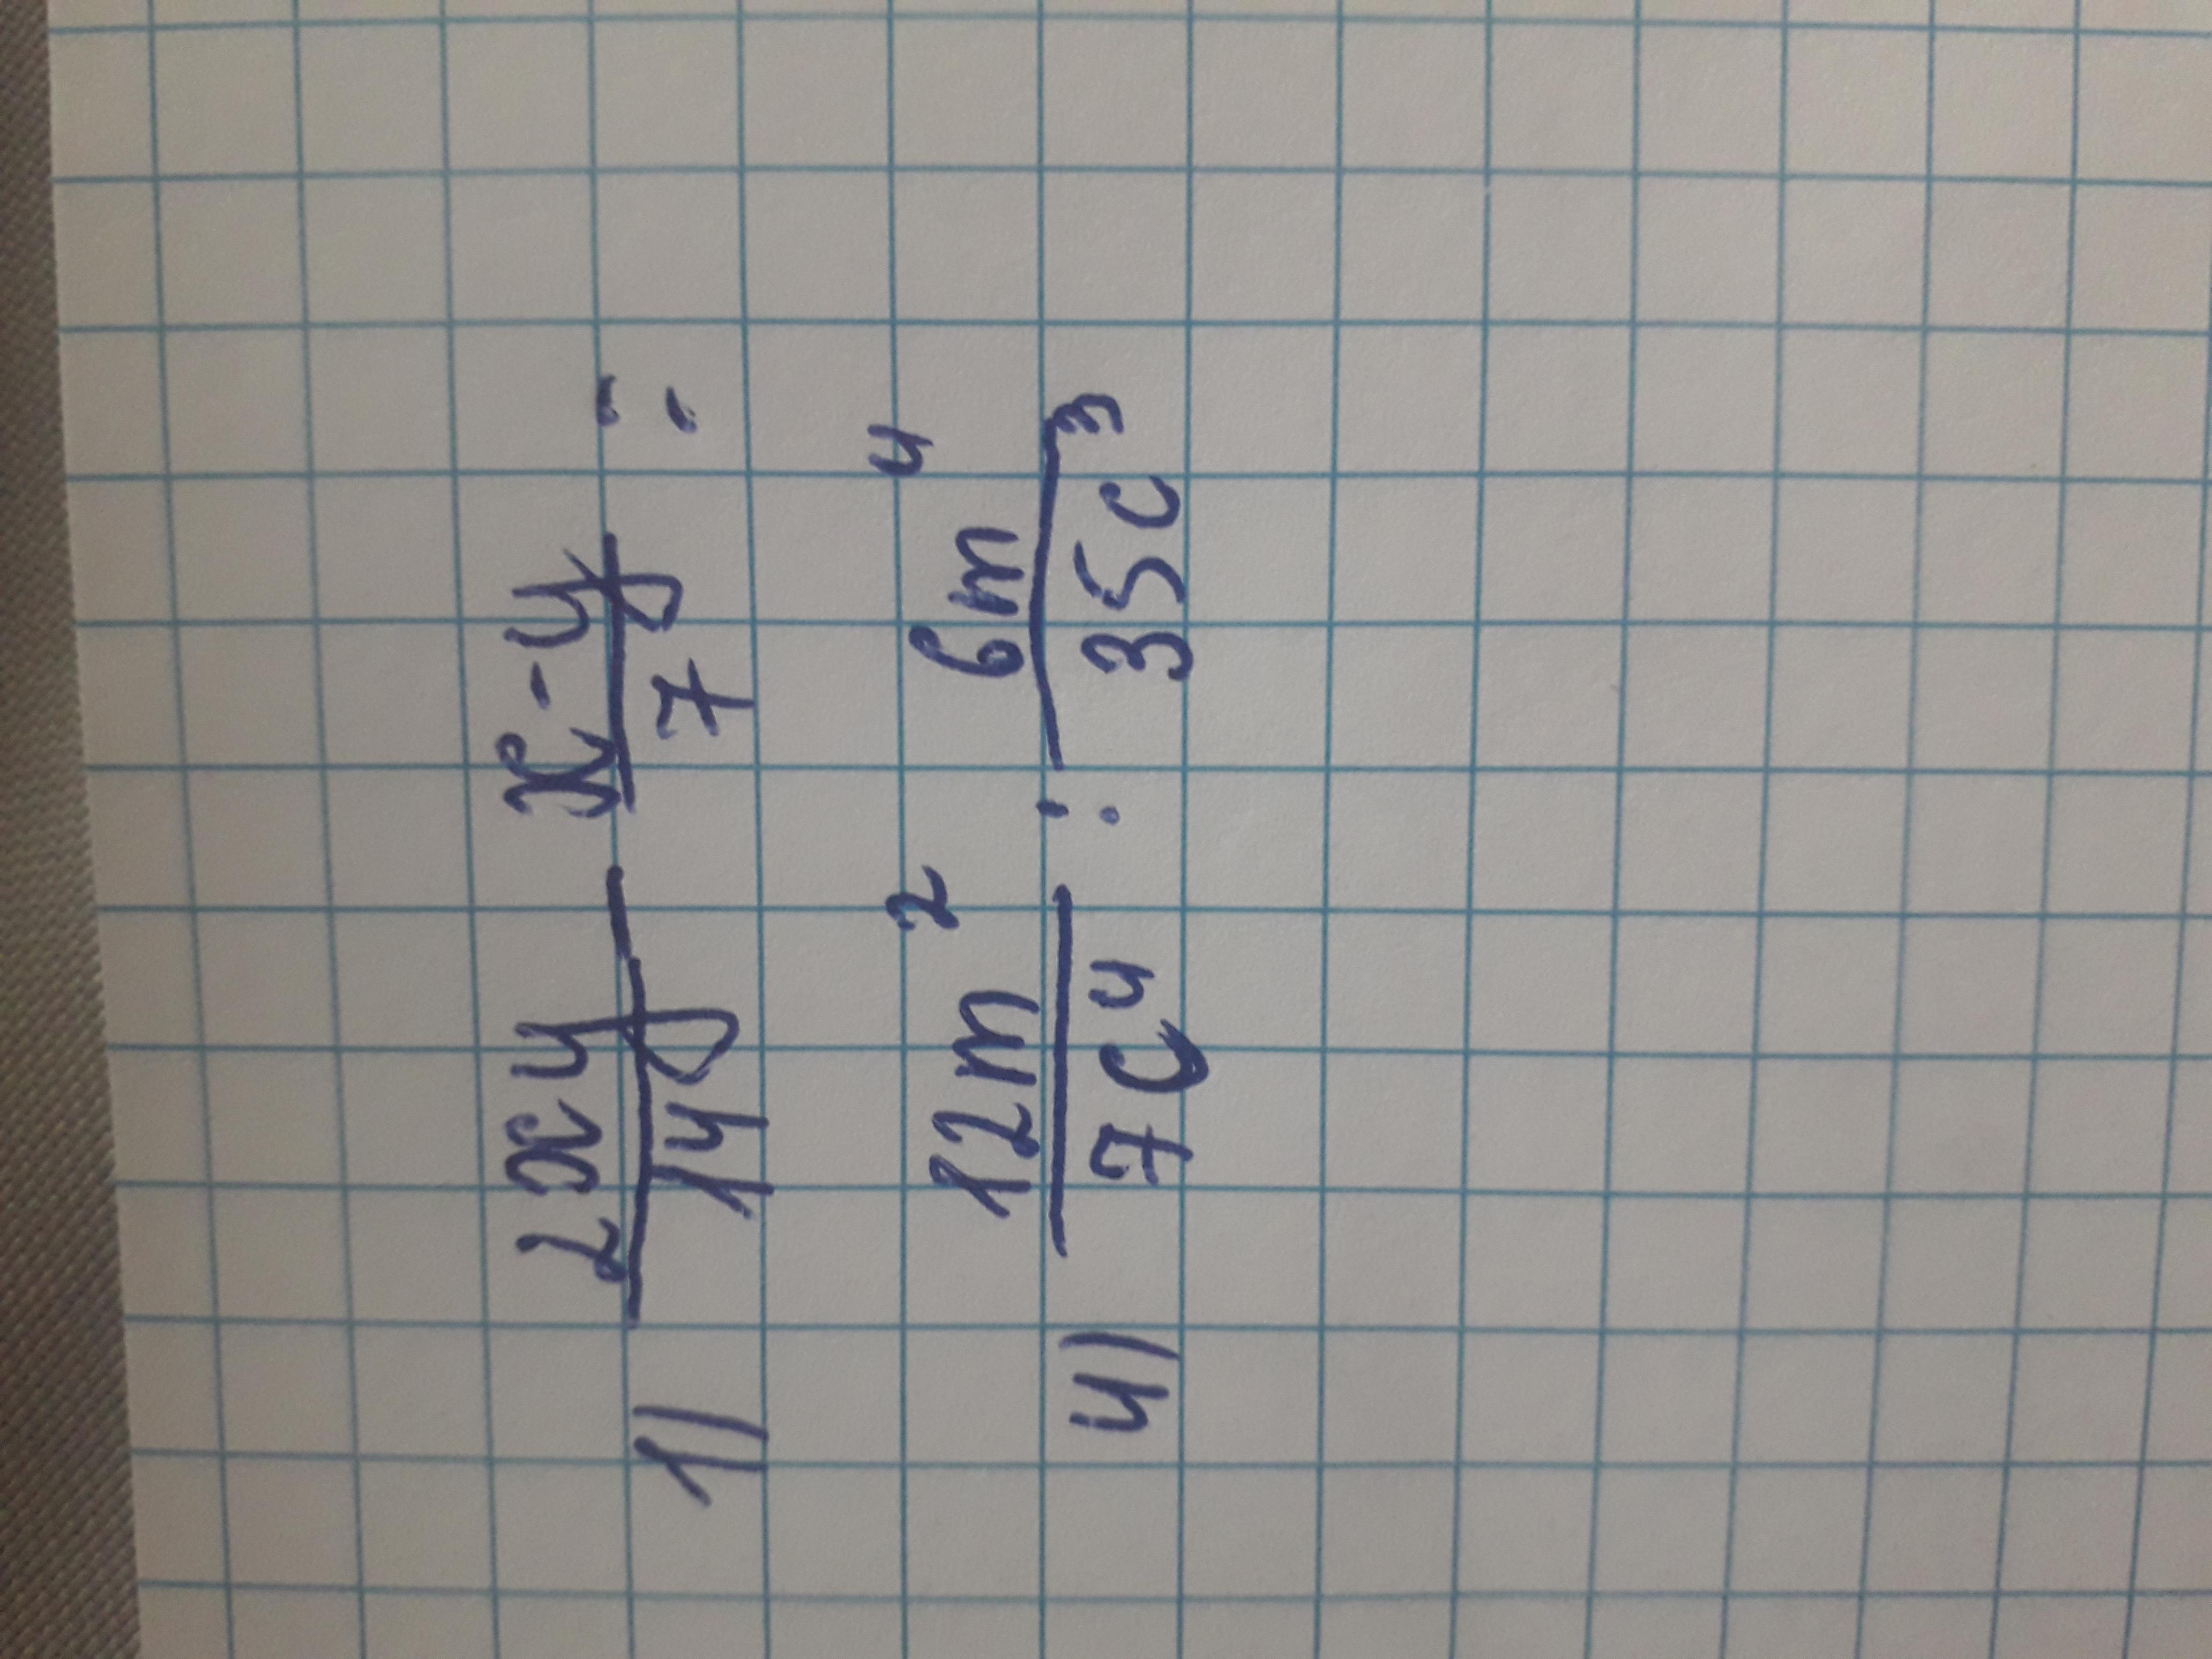 1) 2xy/14 - x-y/7 ;
4) 12m²/7c⁴ : 6m⁴/35c³